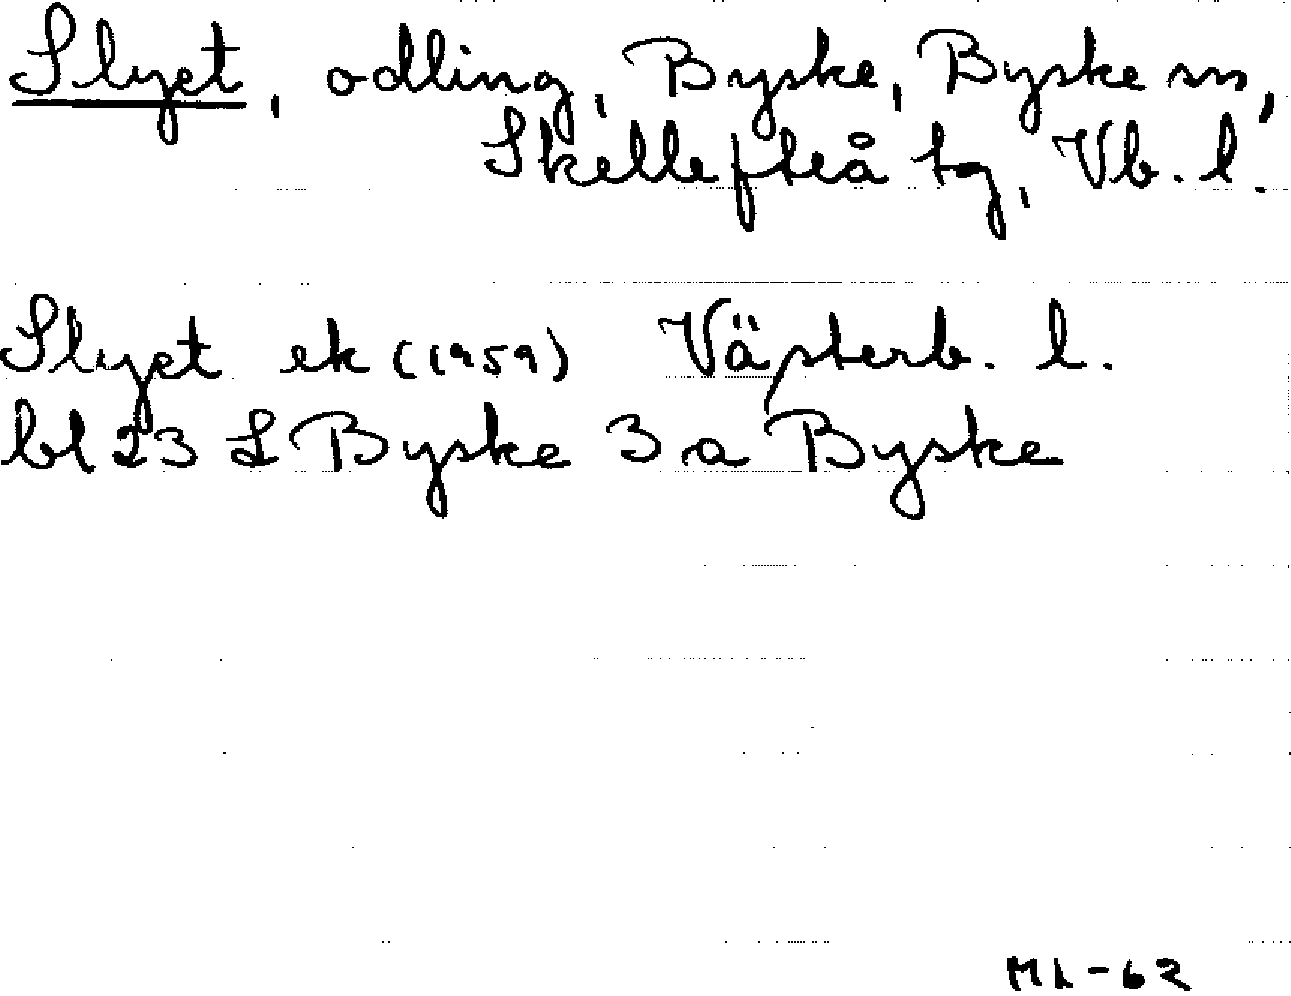 Slyet, odling, Byske, Byske sn,
Skellefteå tg, Vb. l.
Slyet ek (1959) Västerb. l.
bl 23 L Byske 3 a Byske
ML-62